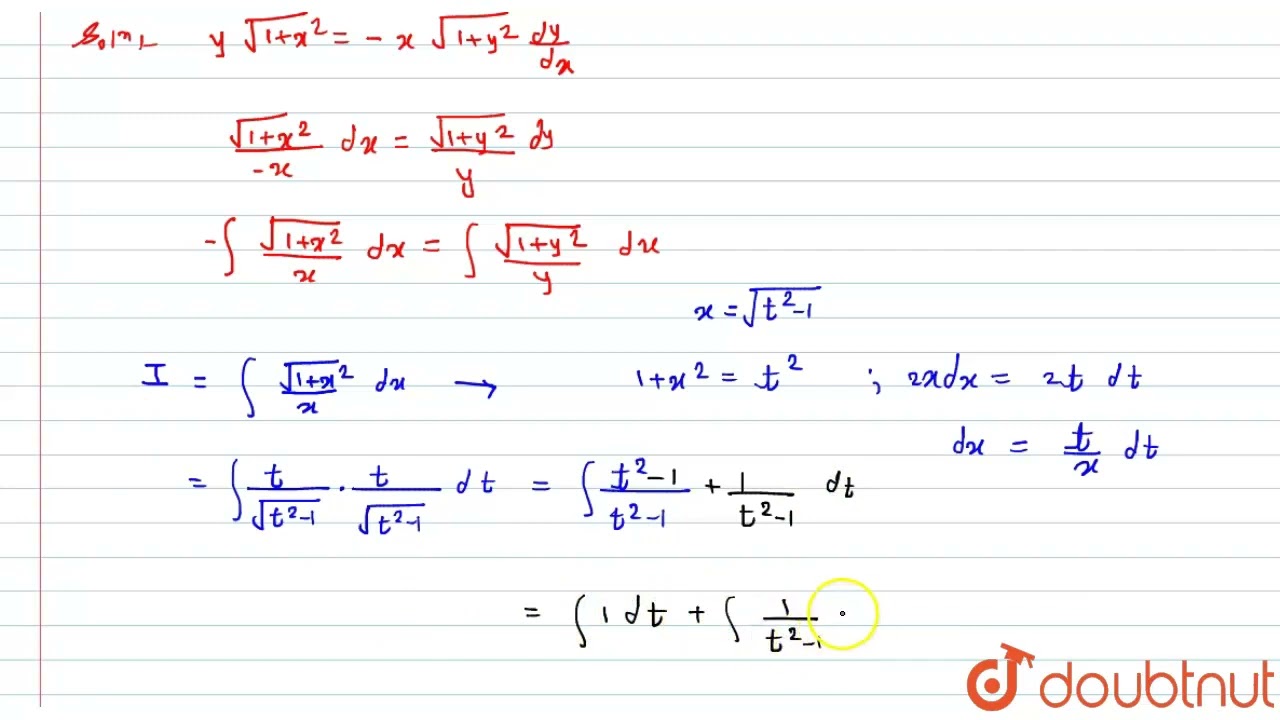 Soln y √(1+x²) = - x √(1+y²) dy/dx
√(1+x²)/-x dx = √(1+y²)/y dy
-∫ √(1+x²)/x dx = ∫ √(1+y²)/y dx
x = √(t²-1)
I = ∫ √(1+x²)/x dx → 1+x² = t² ; 2xdx = 2t dt
dx = t/x dt
= ∫ t/√(t²-1) · t/√(t²-1) dt = ∫ (t²-1)/(t²-1) + 1/(t²-1) dt
= ∫ 1 dt + ∫ 1/(t²-1)
doubtnut